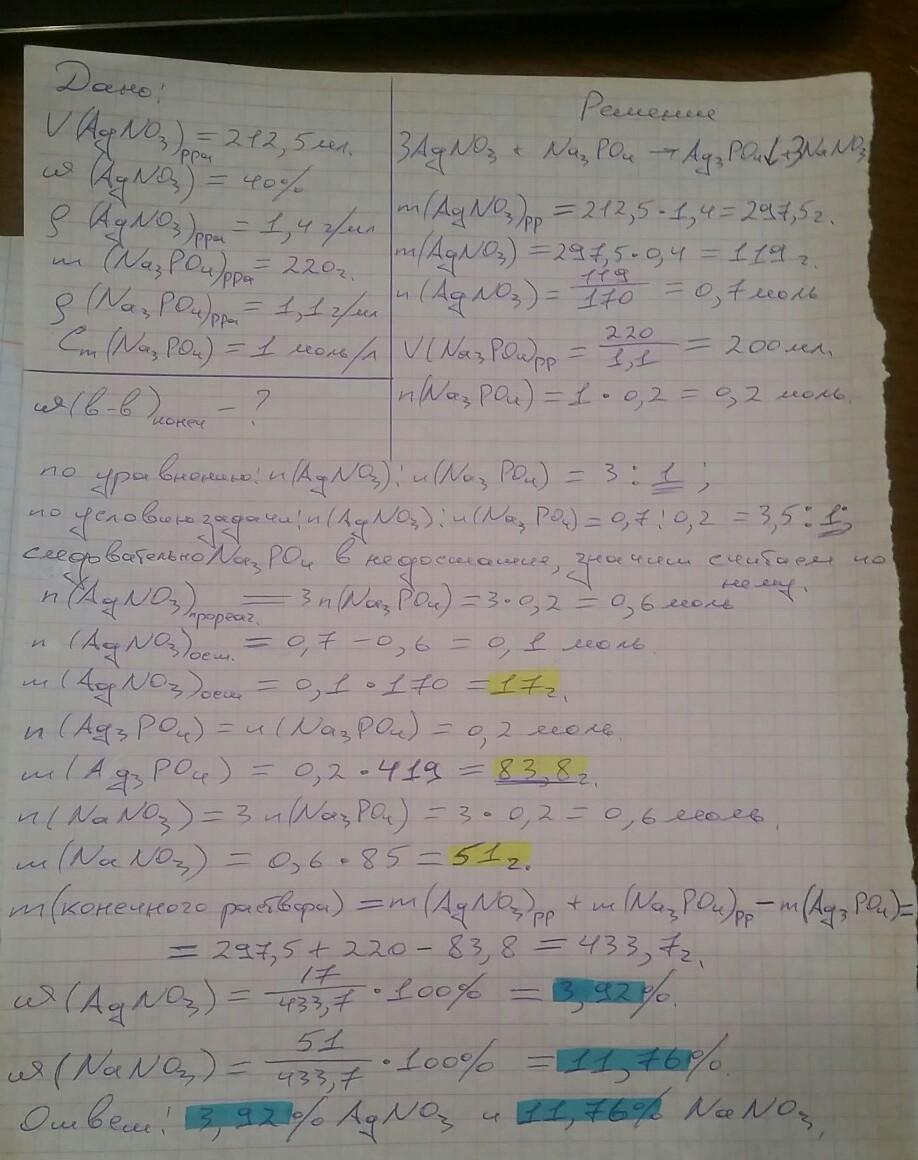 Дано:
V(AgNO₃)р-ра = 212,5 мл.
ω(AgNO₃) = 40%
ρ(AgNO₃)р-ра = 1,4 г/мл
m(Na₃PO₄)р-ра = 220г.
ρ(Na₃PO₄)р-ра = 1,1 г/мл
Cm(Na₃PO₄) = 1 моль/л
ω(в-в)конеч – ?
Решение
3AgNO₃ + Na₃PO₄ → Ag₃PO₄↓+3NaNO₃
m(AgNO₃)рр = 212,5·1,4 = 297,5г.
m(AgNO₃) = 297,5·0,4 = 119 г.
n(AgNO₃) = 119/170 = 0,7 моль
V(Na₃PO₄)рр = 220/1,1 = 200 мл.
n(Na₃PO₄) = 1 · 0,2 = 0,2 моль.
по уравнению: n(AgNO₃) : n(Na₃PO₄) = 3 : 1 ;
по условию задачи: n(AgNO₃) : n(Na₃PO₄) = 0,7 : 0,2 = 3,5 : 1;
следовательно Na₃PO₄ в недостатке, значит считаем по
нему.
n(AgNO₃)прореаг. = 3n(Na₃PO₄) = 3·0,2 = 0,6 моль
n(AgNO₃)ост. = 0,7 – 0,6 = 0,1 моль.
m(AgNO₃)ост = 0,1 · 170 = 17г.
n(Ag₃PO₄) = n(Na₃PO₄) = 0,2 моль.
m(Ag₃PO₄) = 0,2 · 419 = 83,8г.
n(NaNO₃) = 3n(Na₃PO₄) = 3 · 0,2 = 0,6 моль.
m(NaNO₃) = 0,6 · 85 = 51г.
m(конечного раствора) = m(AgNO₃)рр + m(Na₃PO₄)рр – m(Ag₃PO₄) =
= 297,5 + 220 – 83,8 = 433,7г.
ω(AgNO₃) = 17/433,7 · 100% = 3,92%.
ω(NaNO₃) = 51/433,7 · 100% = 11,76%.
Ответ: 3,92% AgNO₃ и 11,76% NaNO₃.